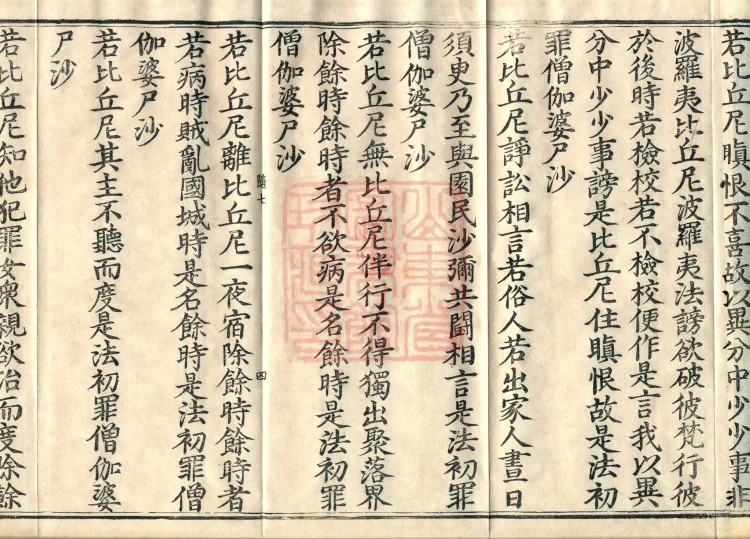 若比丘尼瞋恨不喜故以異分中少少事非
波羅夷比丘尼波羅夷法謗欲破彼梵行彼
於後時若檢校若不檢校便作是言我以異
分中少少事謗是比丘尼住瞋恨故是法初
罪僧伽婆尸沙
若比丘尼諍訟相言若俗人若出家人晝日
須臾乃至與園民沙彌共鬪相言是法初罪
僧伽婆尸沙
若比丘尼無比丘尼伴行不得獨出聚落界
除餘時餘時者不欲病是名餘時是法初罪
僧伽婆尸沙
隨七 四
若比丘尼離比丘尼一夜宿除餘時餘時者
若病時賊亂國城時是名餘時是法初罪僧
伽婆尸沙
若比丘尼其主不聽而度是法初罪僧伽婆
尸沙
若比丘尼知他犯罪女衆親欲治而度除餘